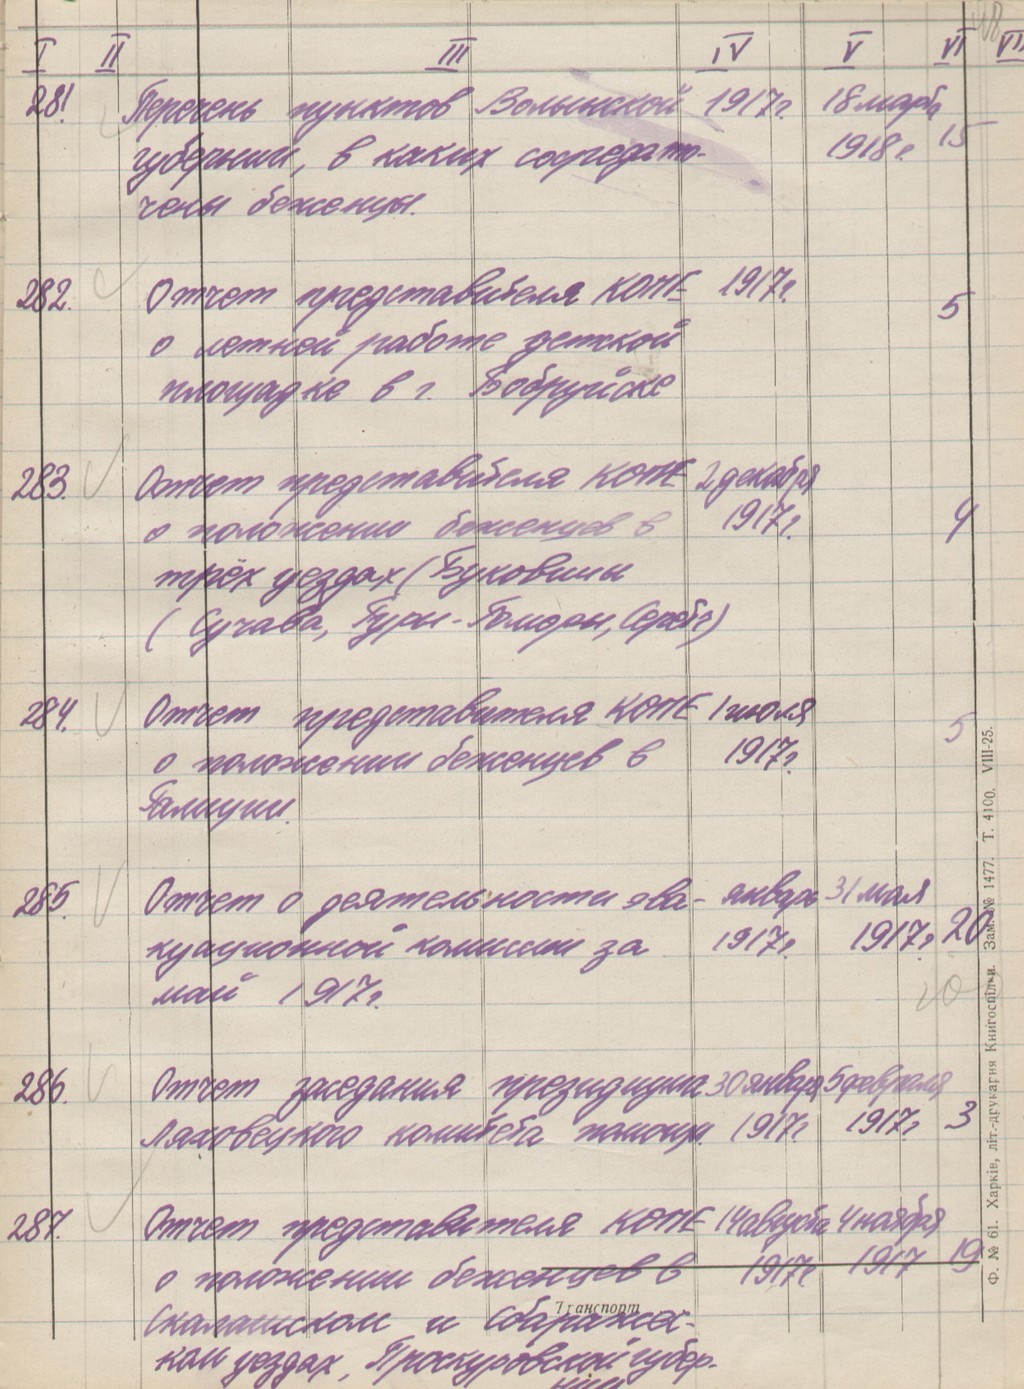 48
I II III IV V VI VII
281. Перечень пунктов Волынской 1917г. 18 марта
губернии, в каких сосредото- 1918г. 15
чены беженцы.
282. Отчет представителя КОПЕ 1917г.
о летней работе детской 5
площадке в г. Бобруйске
283. Отчет представителя КОПЕ 2 декабря
о положении беженцев в 1917г. 4
трёх уездах (Буковины
(Сучава, Гуры-Гоморы, Серет)
284. Отчет представителя КОПЕ 1 июля
о положении беженцев в 1917г. 5
Галиции.
285. Отчет о деятельности эва- январь 31 мая
куационной комиссии за 1917г. 1917г. 20
май 1917г. 20
286. Отчет заседания президиума 30 января 5 февраля
Ляховецкого комитета помощи. 1917г. 1917г. 3
287. Отчет представителя КОПЕ 14 августа 4 ноября
о положении беженцев в 1917г 1917 19
Транспорт
Скалатском и Сбаражес-
ком уездах, Проскуровской губер-
нии
Ф. № 61. Харків, літ.-друкарня Книгоспілки. Зам. № 1477. Т. 4100. VIII-25.